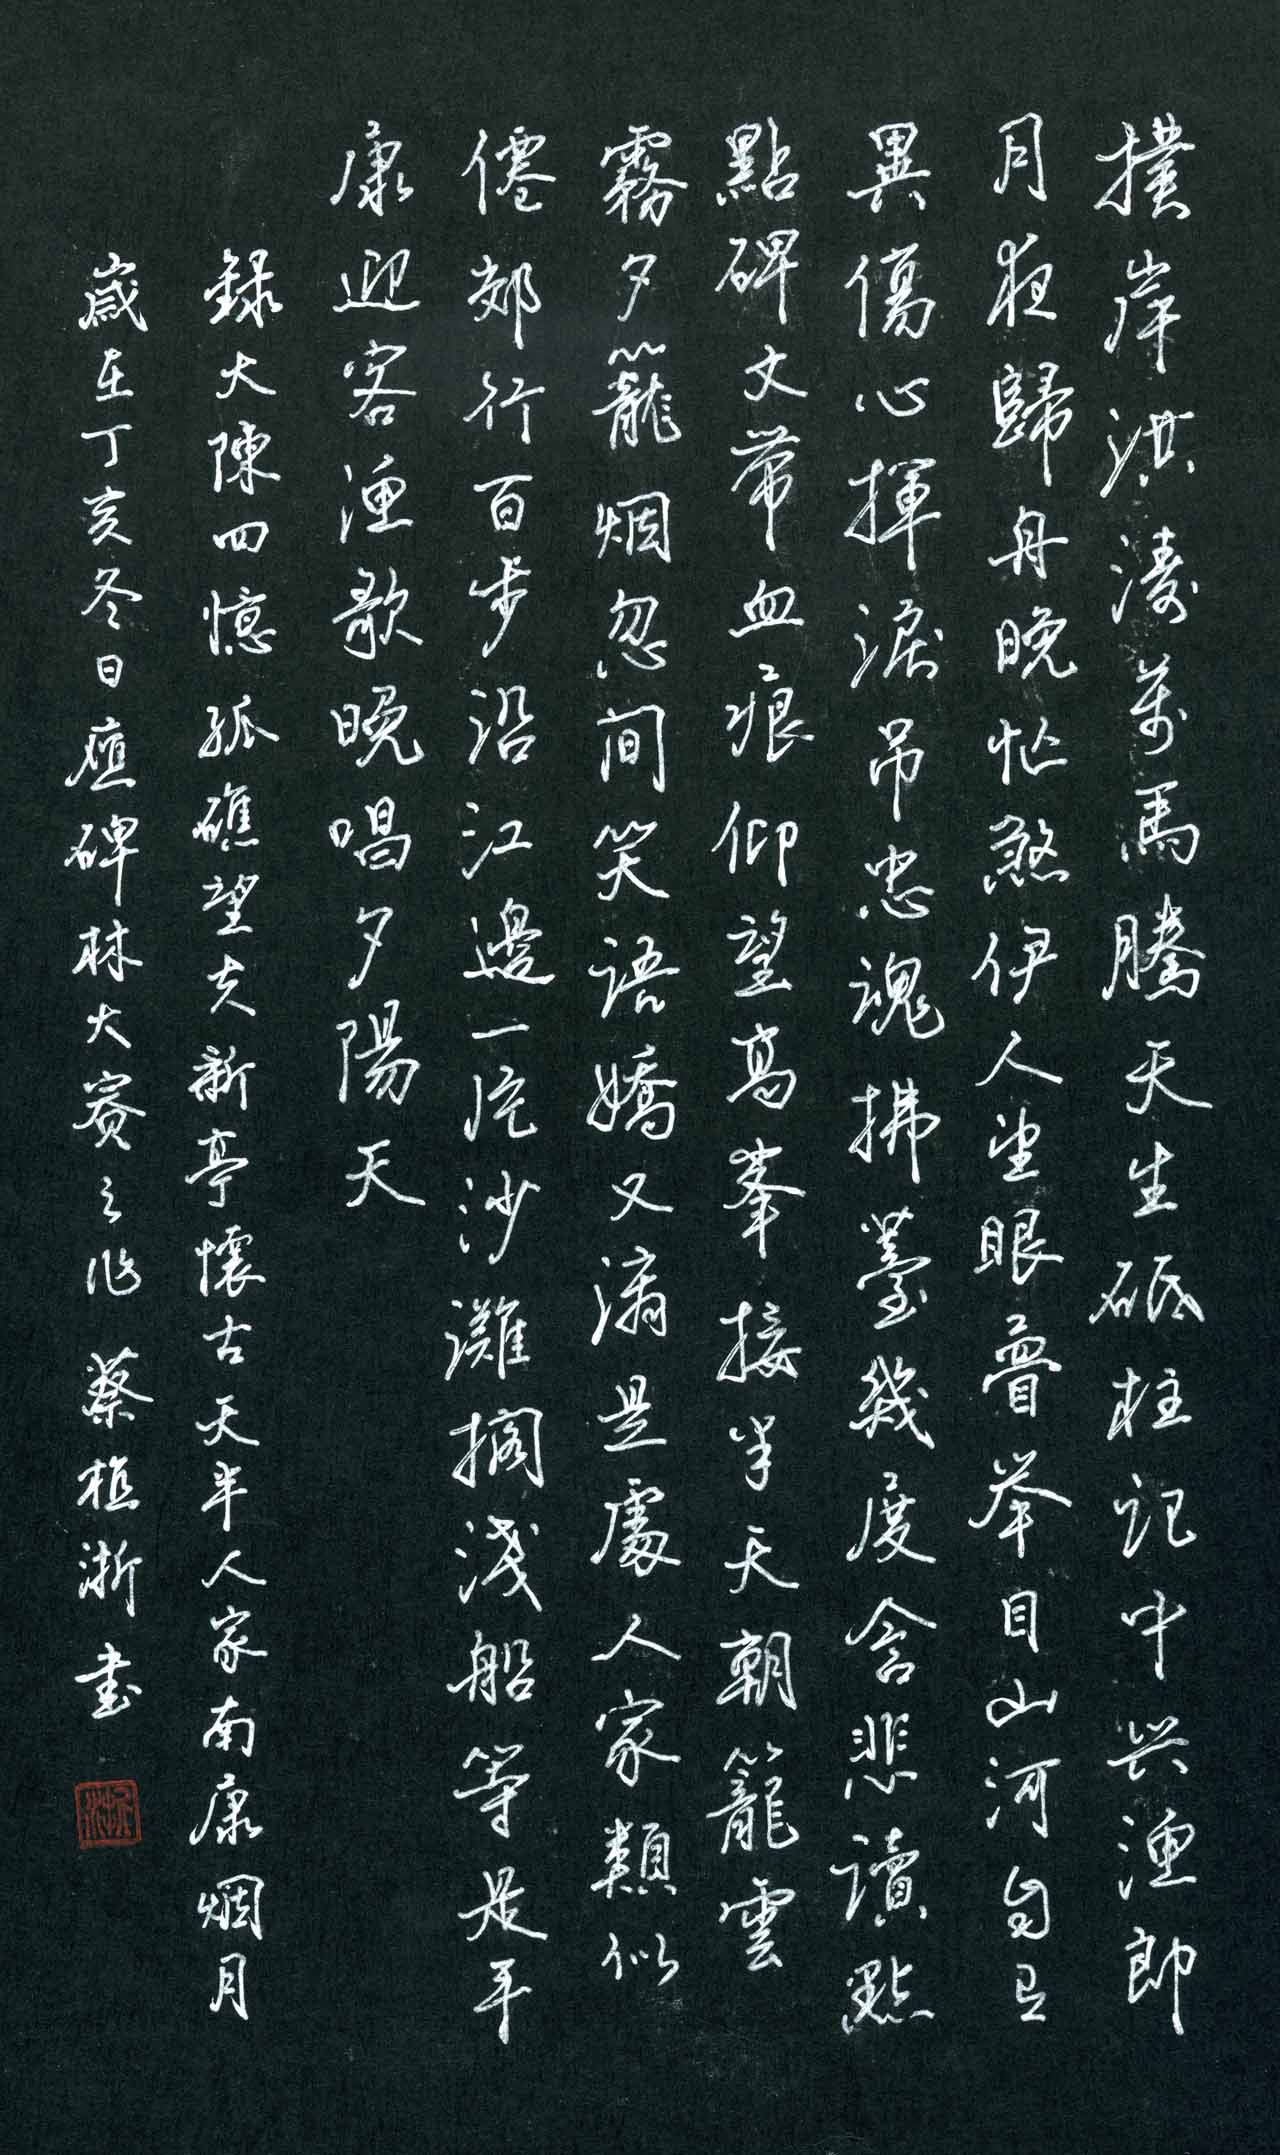 撲岸洪濤萬馬騰天生砥柱記中兴漁郎
月夜歸舟晚忙煞伊人望眼瞢举目山河自已
異傷心揮淚吊忠魂拂臺幾度含悲讀點
點碑文带血痕仰望高峯接半天朝籠雲
霧夕籠烟忽间笑语嬌又满是處人家類似
僊郊行百步沿江邊一片沙灘擱淺船等是平
康迎客漁歌晚唱夕陽天
録大陳四憶孤礁望夫新亭懷古天半人家南康烟月
歲在丁亥冬日應碑林大賽之作 蔡樵浙書